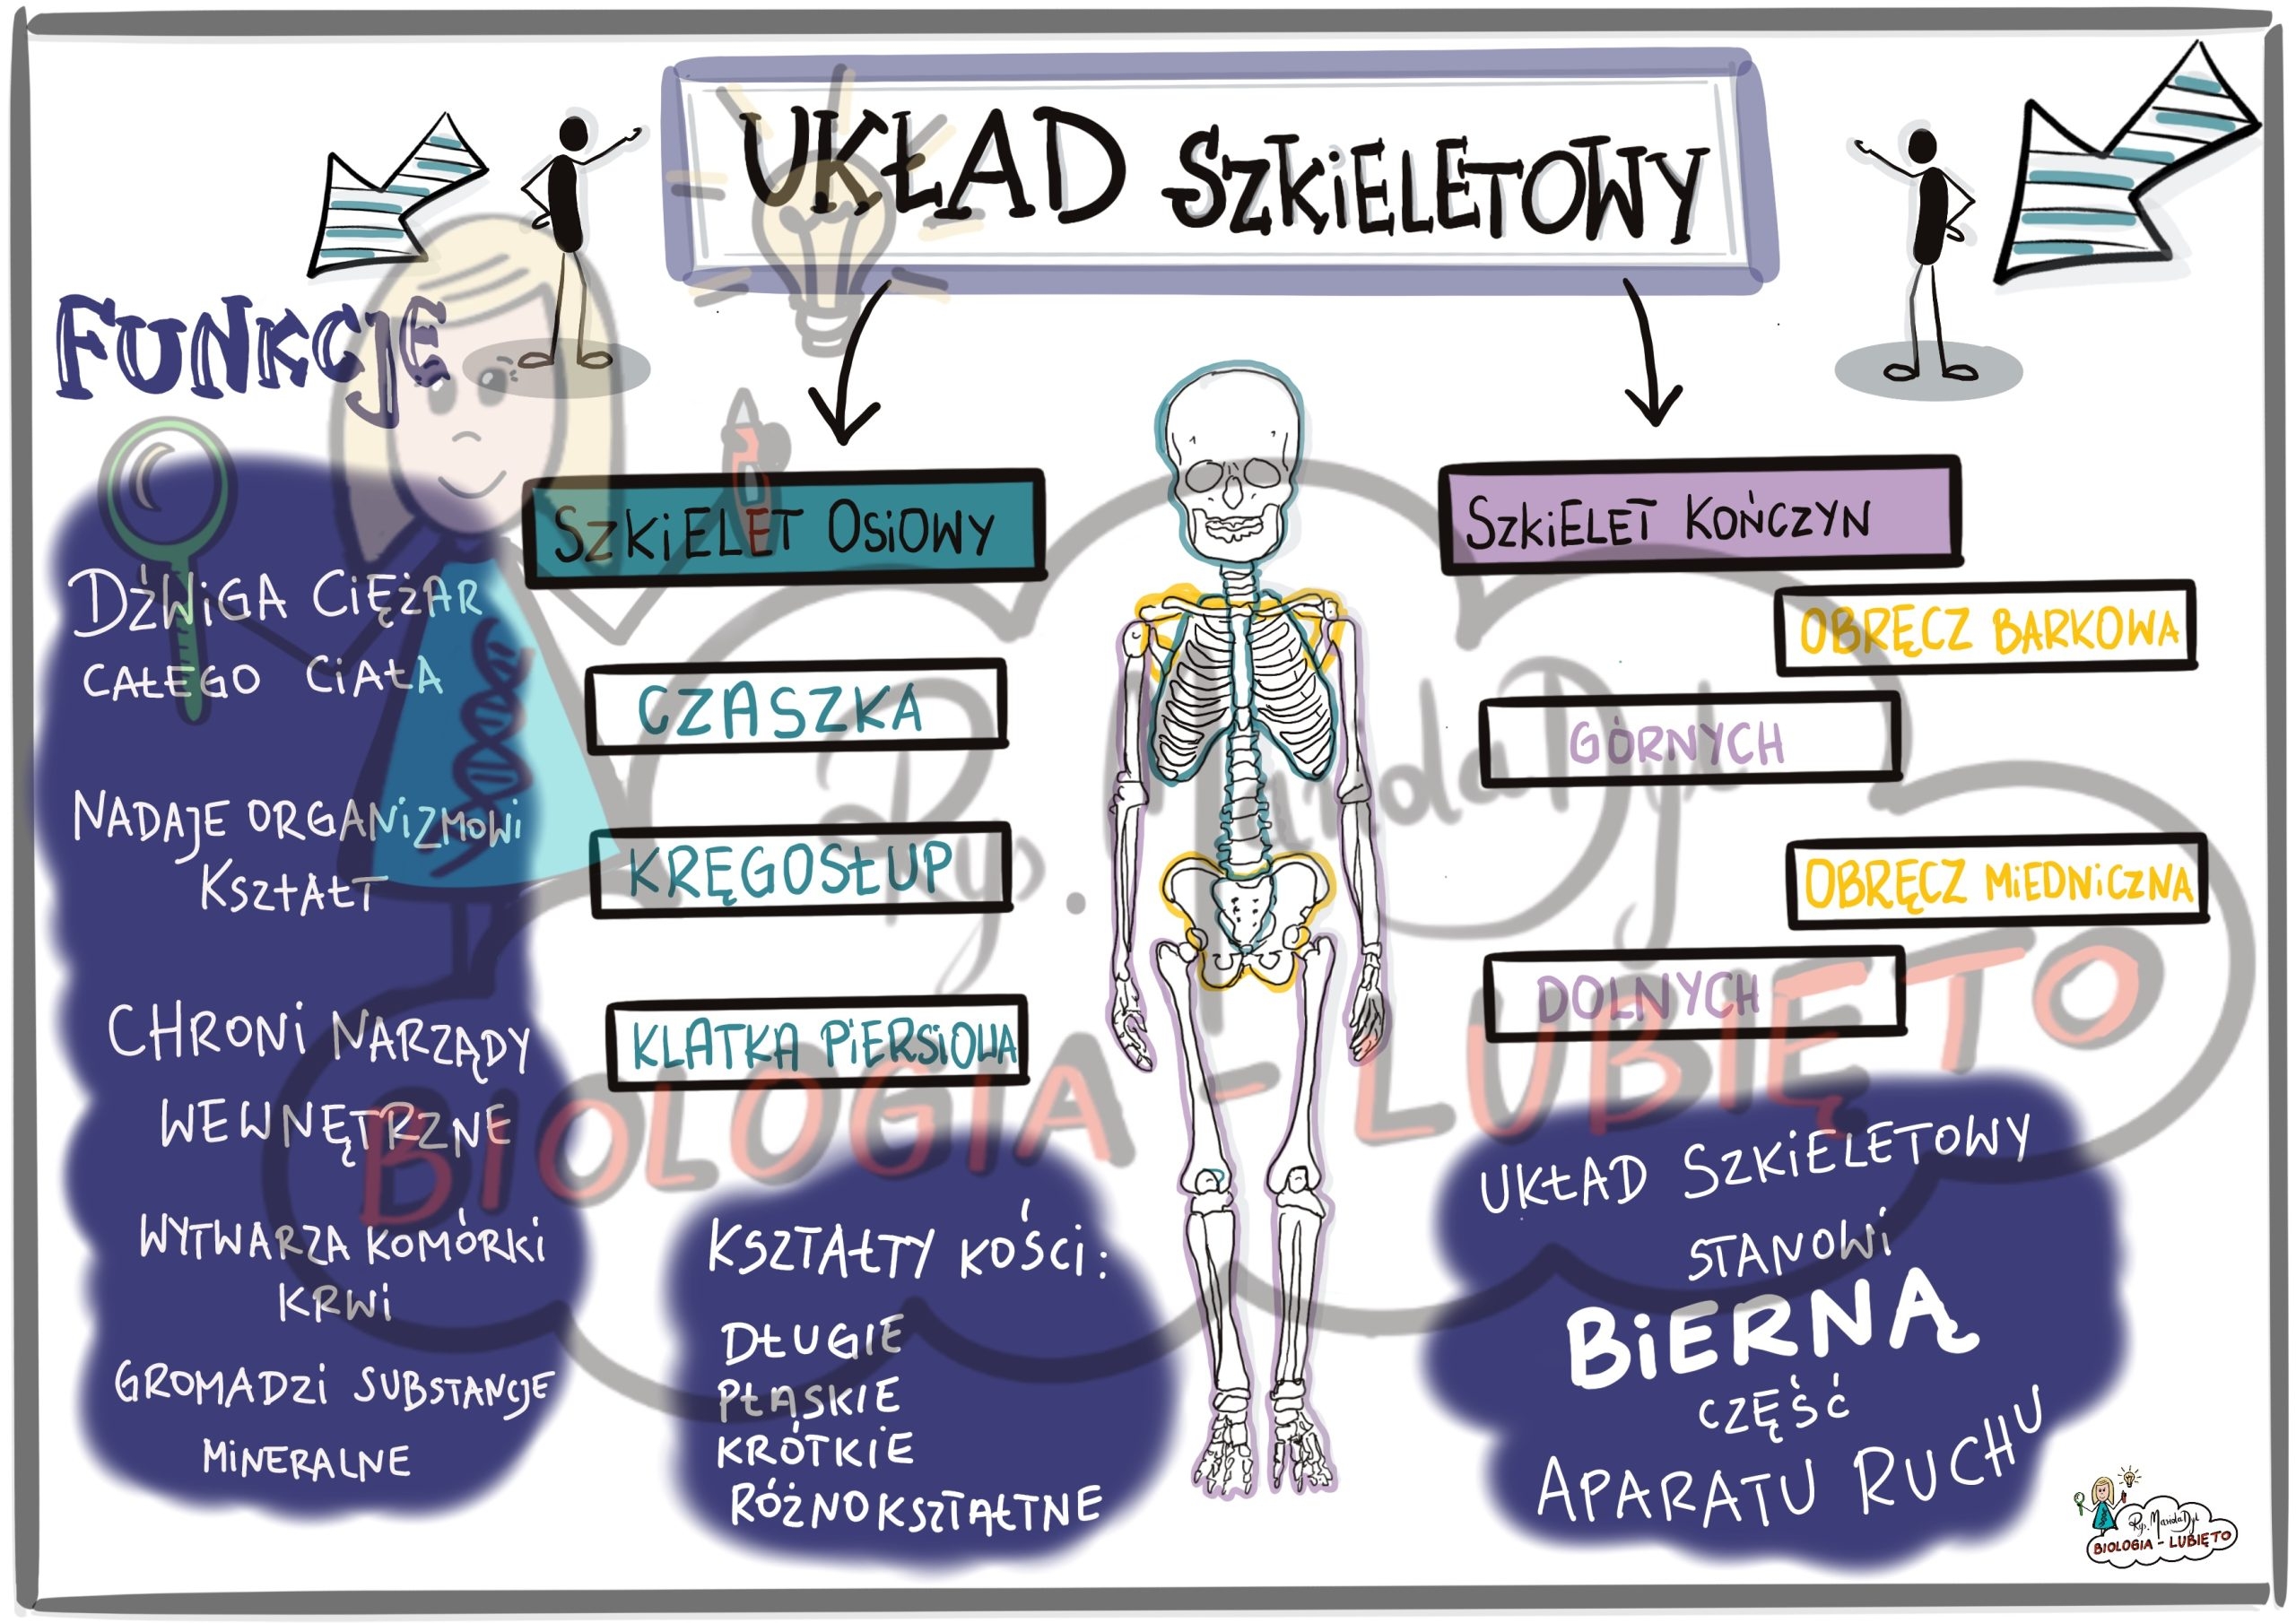 UKŁAD SZKIELETOWY
FUNKCJE
DŹWIGA CIĘŻAR
CAŁEGO CIAŁA
NADAJE ORGANIZMOWI
KSZTAŁT
CHRONI NARZĄDY
WEWNĘTRZNE
WYTWARZA KOMÓRKI
KRWI
GROMADZI SUBSTANCJE
MINERALNE
SZKIELET OSIOWY
CZASZKA
KRĘGOSŁUP
KLATKA PIERSIOWA
KSZTAŁTY KOŚCI:
DŁUGIE
PŁASKIE
KRÓTKIE
RÓŻNOKSZTAŁTNE
SZKIELET KOŃCZYN
OBRĘCZ BARKOWA
GÓRNYCH
OBRĘCZ MIEDNICZNA
DOLNYCH
UKŁAD SZKIELETOWY
STANOWI
BIERNĄ
CZĘŚĆ
APARATU RUCHU
Rys. Mariola Dyl
BIOLOGIA - LUBIĘ TO
Rys. Mariola Dyl
BIOLOGIA - LUBIĘ TO